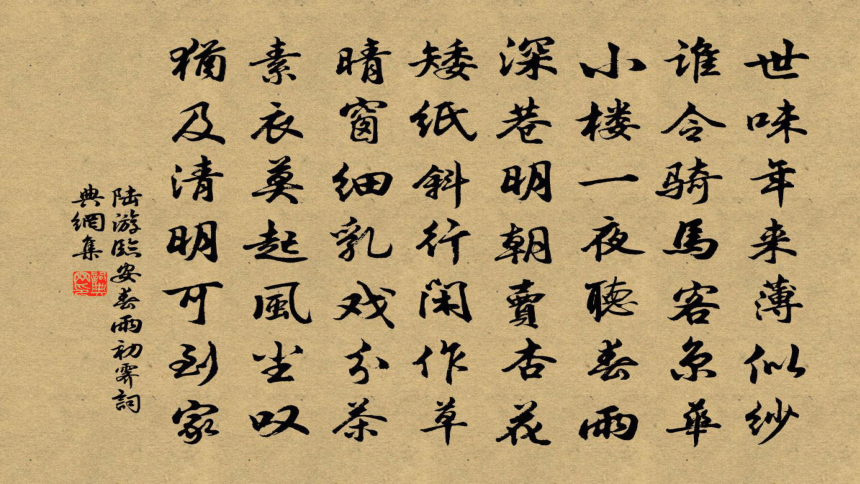 世味年来薄似纱
谁令骑馬客京華
小楼一夜聽春雨
深巷明朝賣杏花
矮纸斜行闲作草
晴窗细乳戏分茶
素衣莫起風尘叹
猶及清明可到家
陆游臨安春雨初霽詞
典網集